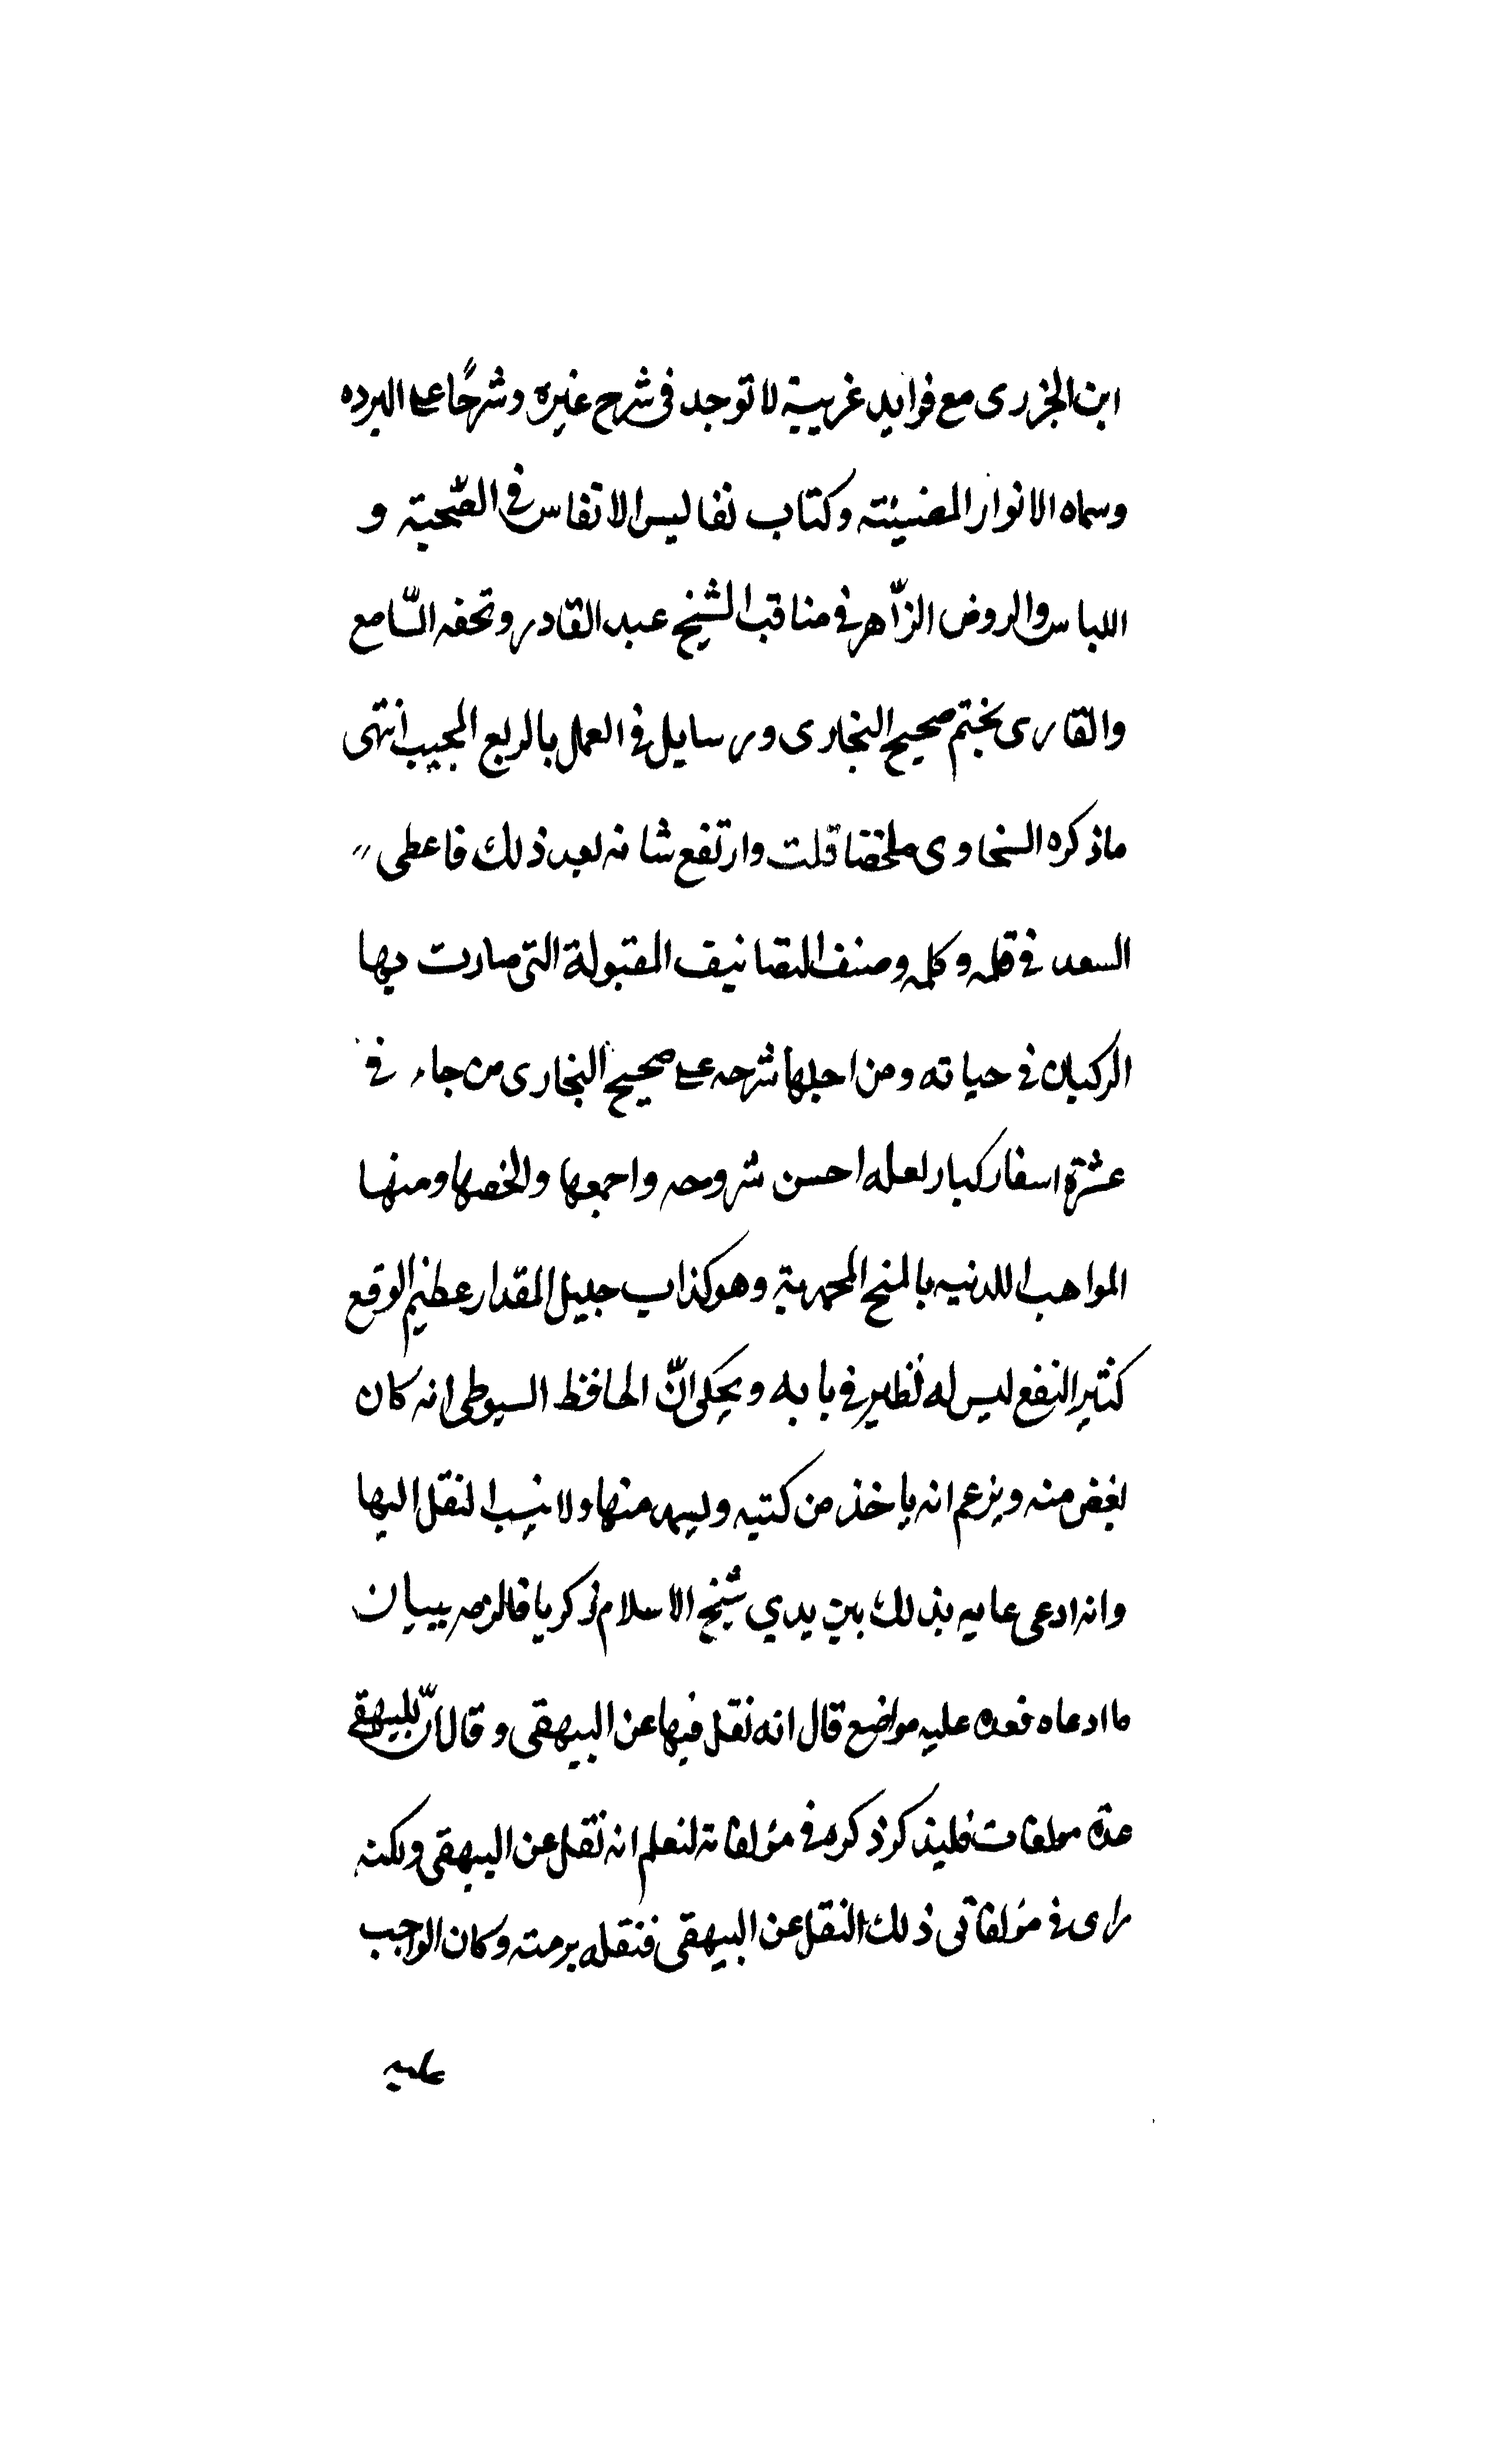 ابن الجزرى مع فوايد غريبة لا توجد فى شرح غيره وشرحًا على البرده
وسماه الانوار المضيئته وكتاب نفاليس الانفاس فى الصّحبة و
اللباس والروض الزّاهر فى مناقب الشيخ عبد القادر وتحفه السّامع
والقارى بختم صحيح البخارى ورسايل فى العمل بالربع المجيب انتهى
ماذكره السخاوى ملخصا قلت وارتفع شانه بعد ذلك فاعطى "
السعد فى قلمه وكلمه وصنف التصانيف المقبولة التى صارت بها
الركبان فى حياته ومن اجلها شرحه على صحيح البخارى من جاء فى
عشرة اسفار كبار لعله احسن شروحه واجمعها والخصها ومنها
المواهب اللدنيه بالمنح المحمدية وهو كتاب جليل المقدار عظيم الوقع
كثير النفع ليس له نظير فى بابه ويحكى انّ الحافظ السيوطى انه كان
يغض منه ويزعم انه ياخذ من كتبه ويستمد منها ولا ينسب النقل اليها
وانه ادعى عليه بذلك بين يدي شيخ الاسلام زكريا فالزمه ببيان
ما ادعاه فعده عليه مواضع قال انه نقل فيها عن البيهقى وقال انّ للبيهقى
عدة مولفات فليذكر ذكره فى مؤلفاته لنعلم انه نقل عن البيهقى ولكنه
راى فى مؤلفاتى ذلك النقل عن البيهقى فنقله برمته وكان الواجب
عليه